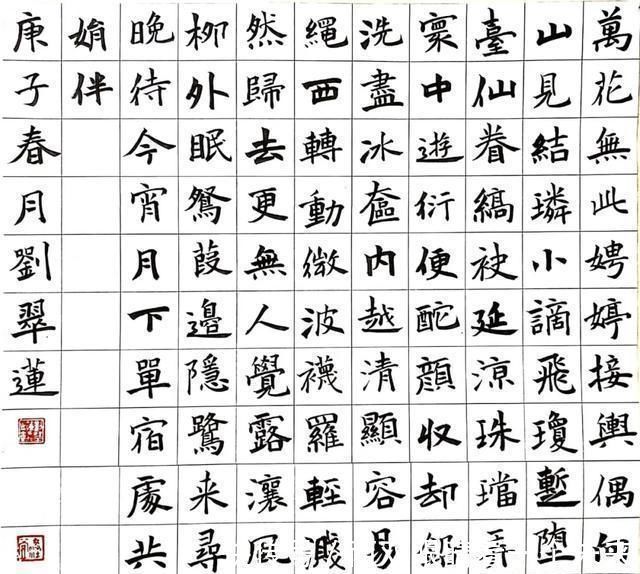 萬花無此娉婷接輿偶
山見結璘小謫飛瓊墮
臺仙眷縞袂延涼珠璫
寰中遊衍便酡顏收却
洗盡冰奩內越清顯容易
繩西轉動微波襪羅輕濺
然歸去更無人覺露瀼風
柳外眠鴛葭邊隱鷺来尋
晚待今宵月下單宿處共
娟伴
庚子春月劉翠蓮